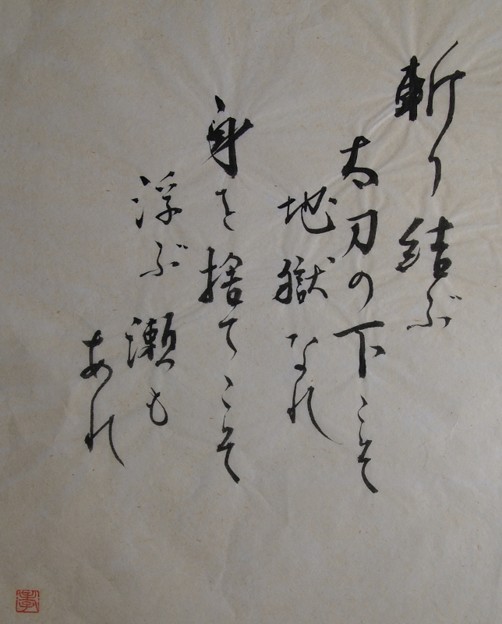 斬り結ぶ
太刀の下こそ
地獄なれ
身を捨てこそ
浮ぶ瀬も
あれ